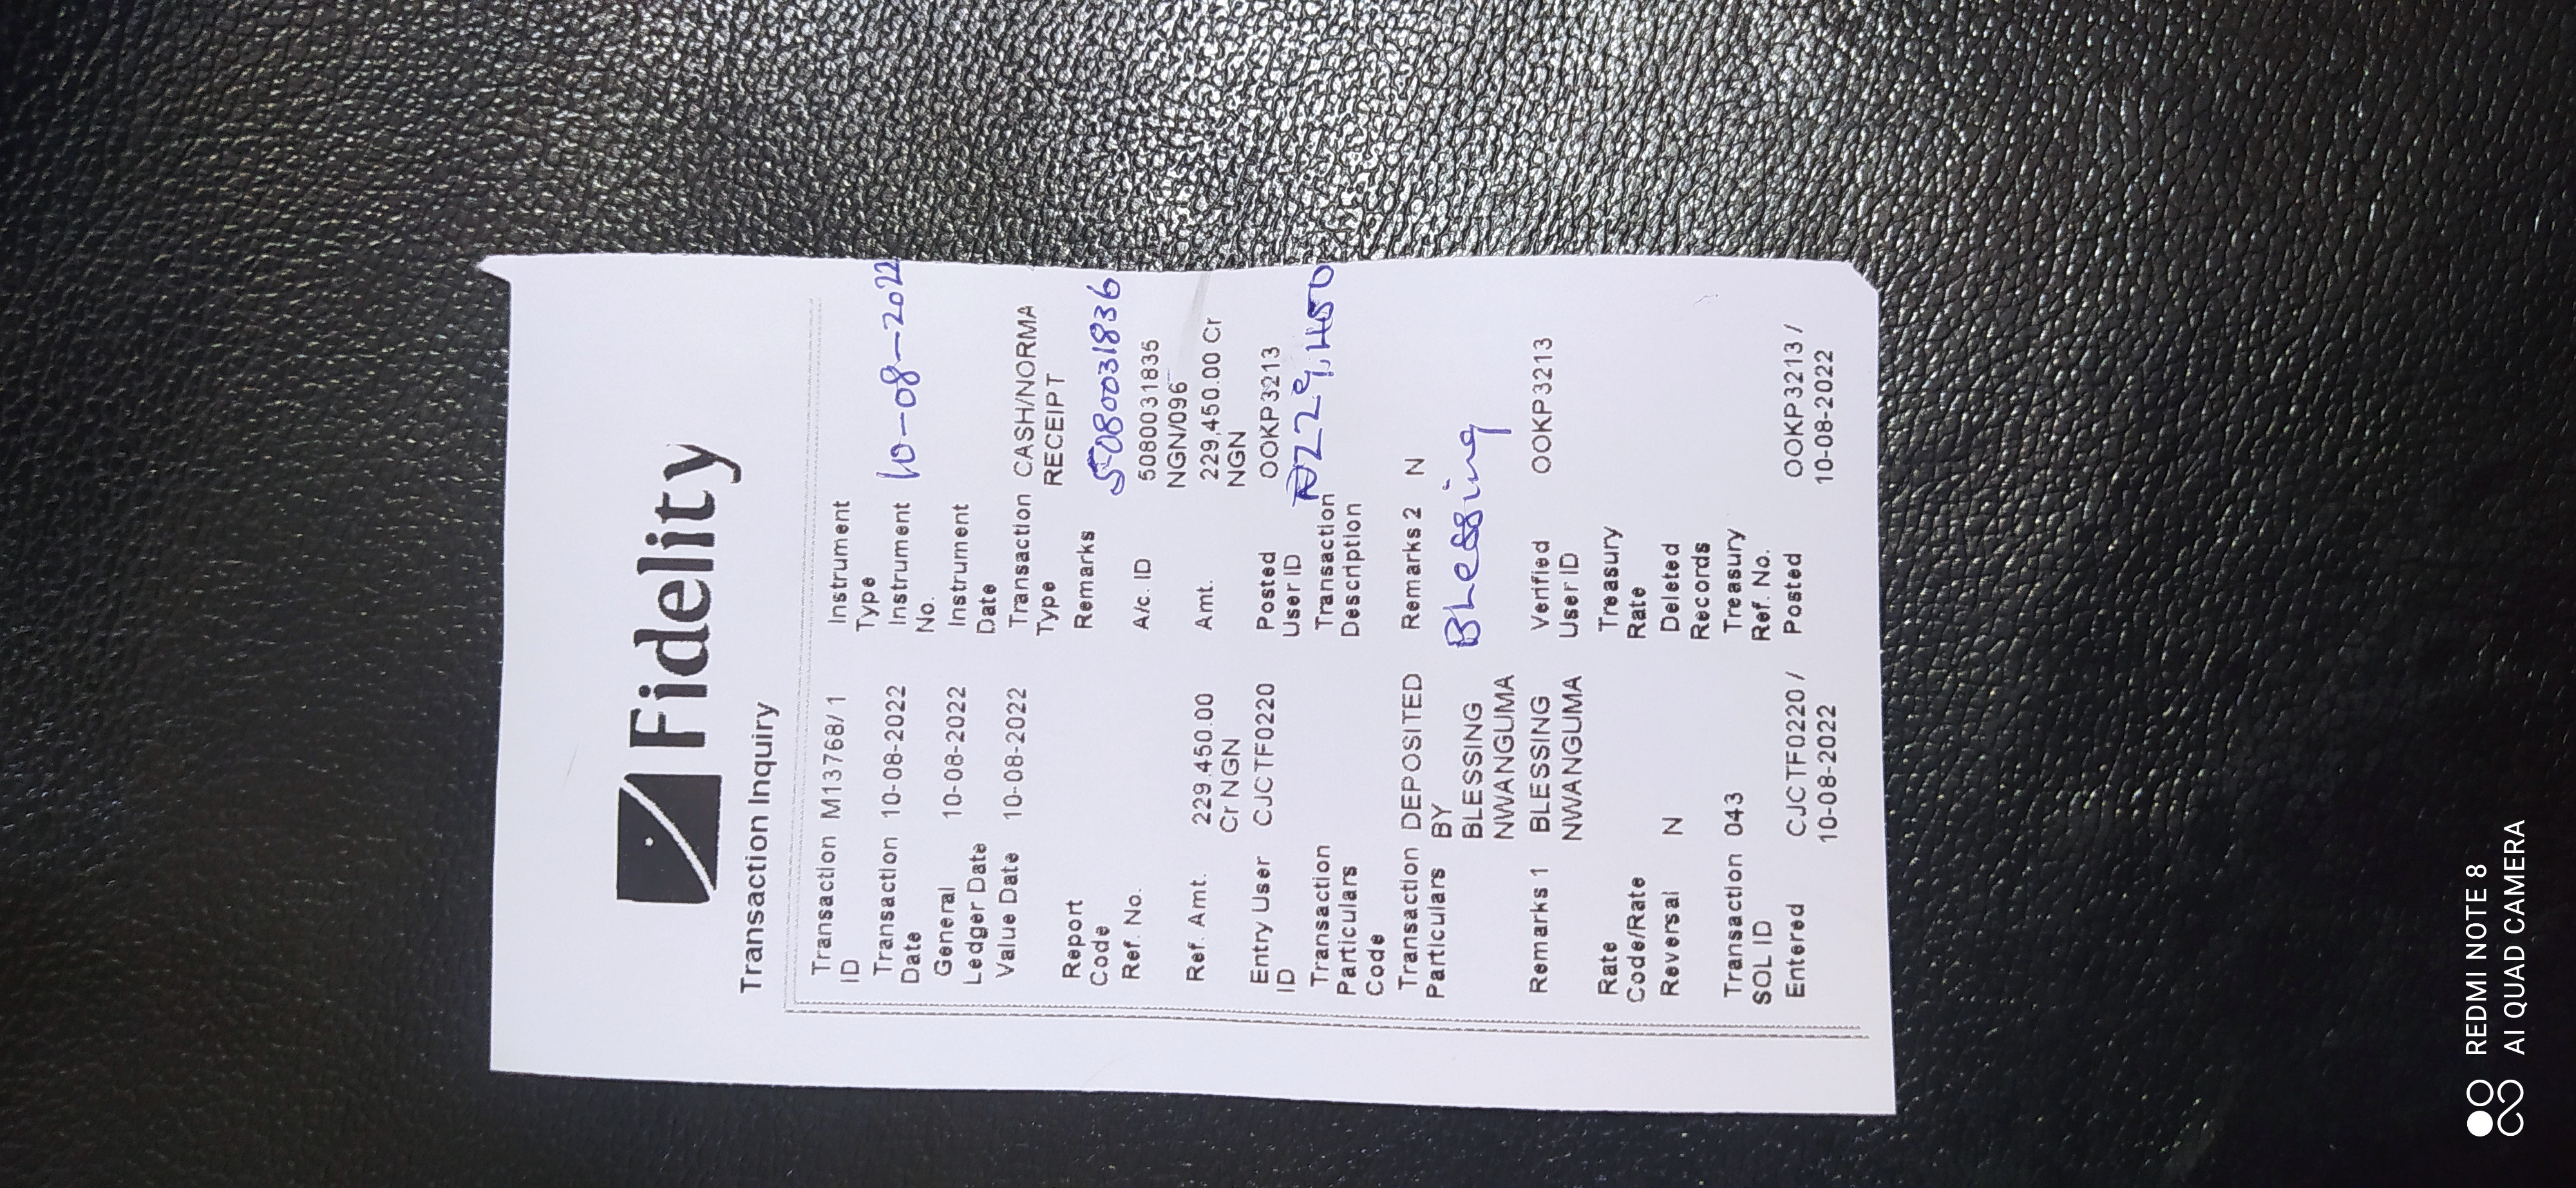 Fidelity
Transaction Inquiry
Transaction M13768/ 1 Instrument
ID Type
Transaction 10-08-2022 Instrument 10-08-2022
Date No.
General 10-08-2022 Instrument
Ledger Date Date
Value Date 10-08-2022 Transaction CASH/NORMA
Type RECEIPT
Report Remarks
Code 5080031836
Ref. No. A/c. ID 5080031835
NGN/096
Ref. Amt. 229,450.00 Amt. 229,450.00 Cr
Cr NGN NGN
Entry User CJCTF0220 Posted OOKP3213
ID User ID
Transaction Transaction ₦229,450
Particulars Description
Code
Transaction DEPOSITED Remarks 2 N
Particulars BY
BLESSING Blessing
NWANGUMA
Remarks 1 BLESSING Verified OOKP3213
NWANGUMA User ID
Rate Treasury
Code/Rate Rate
Reversal N Deleted
Records
Transaction 043 Treasury
SOL ID Ref. No.
Entered CJCTF0220 / Posted OOKP3213 /
10-08-2022 10-08-2022
REDMI NOTE 8
AI QUAD CAMERA